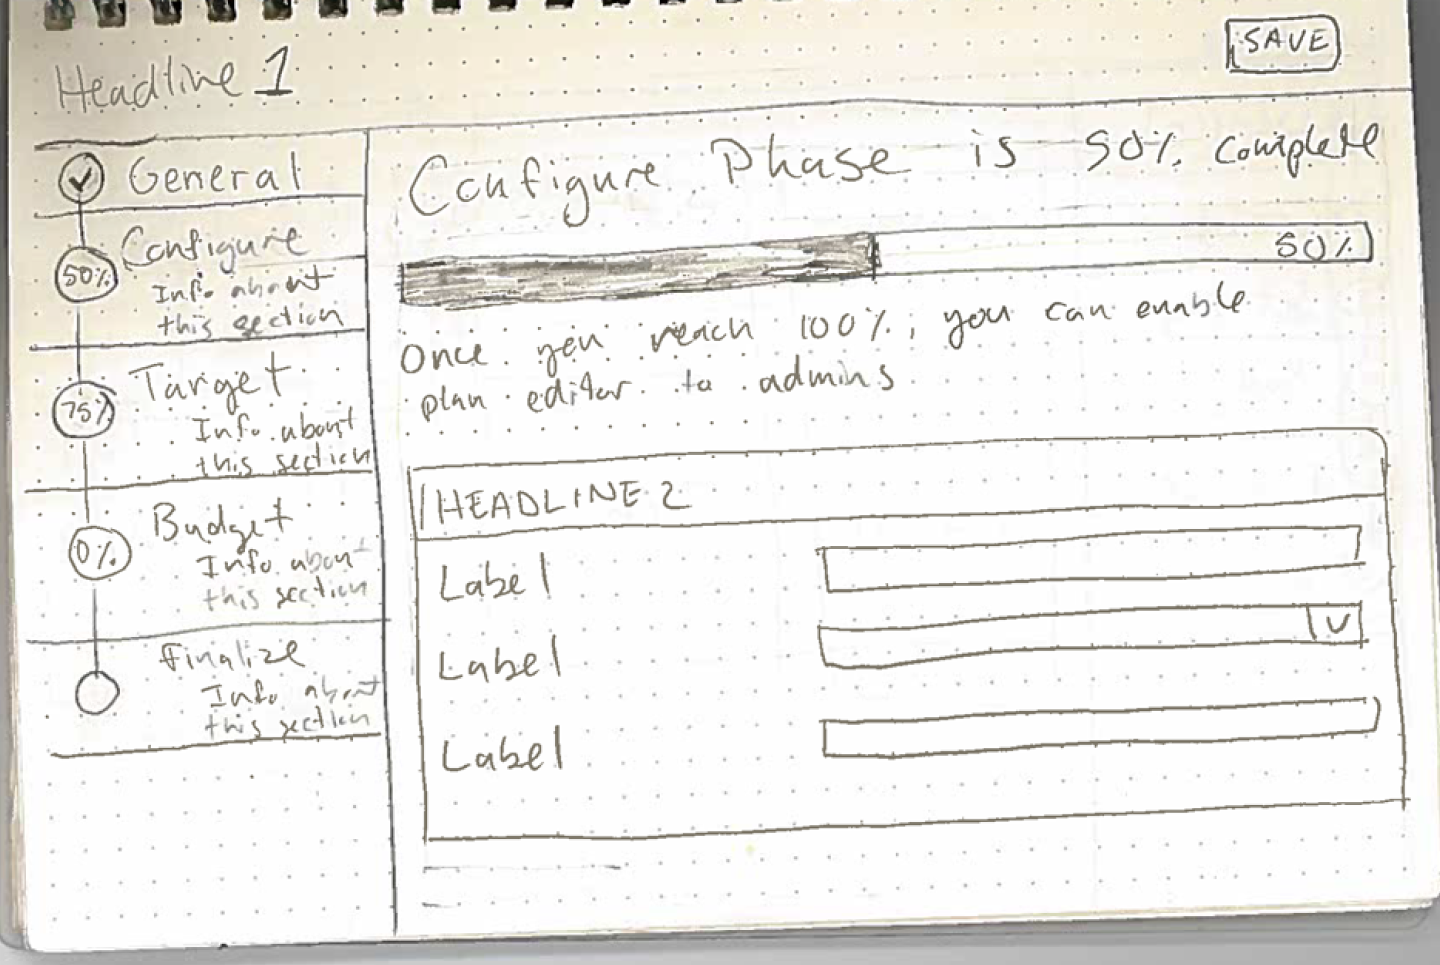 Headline 1
SAVE
General
50%
Configure
Info about
this section
75%
Target
Info about
this section
0%
Budget
Info about
this section
Finalize
Info about
this section
Configure Phase is 50% complete
50%
Once you reach 100%, you can enable
plan editor to admins
HEADLINE 2
Label
Label
Label